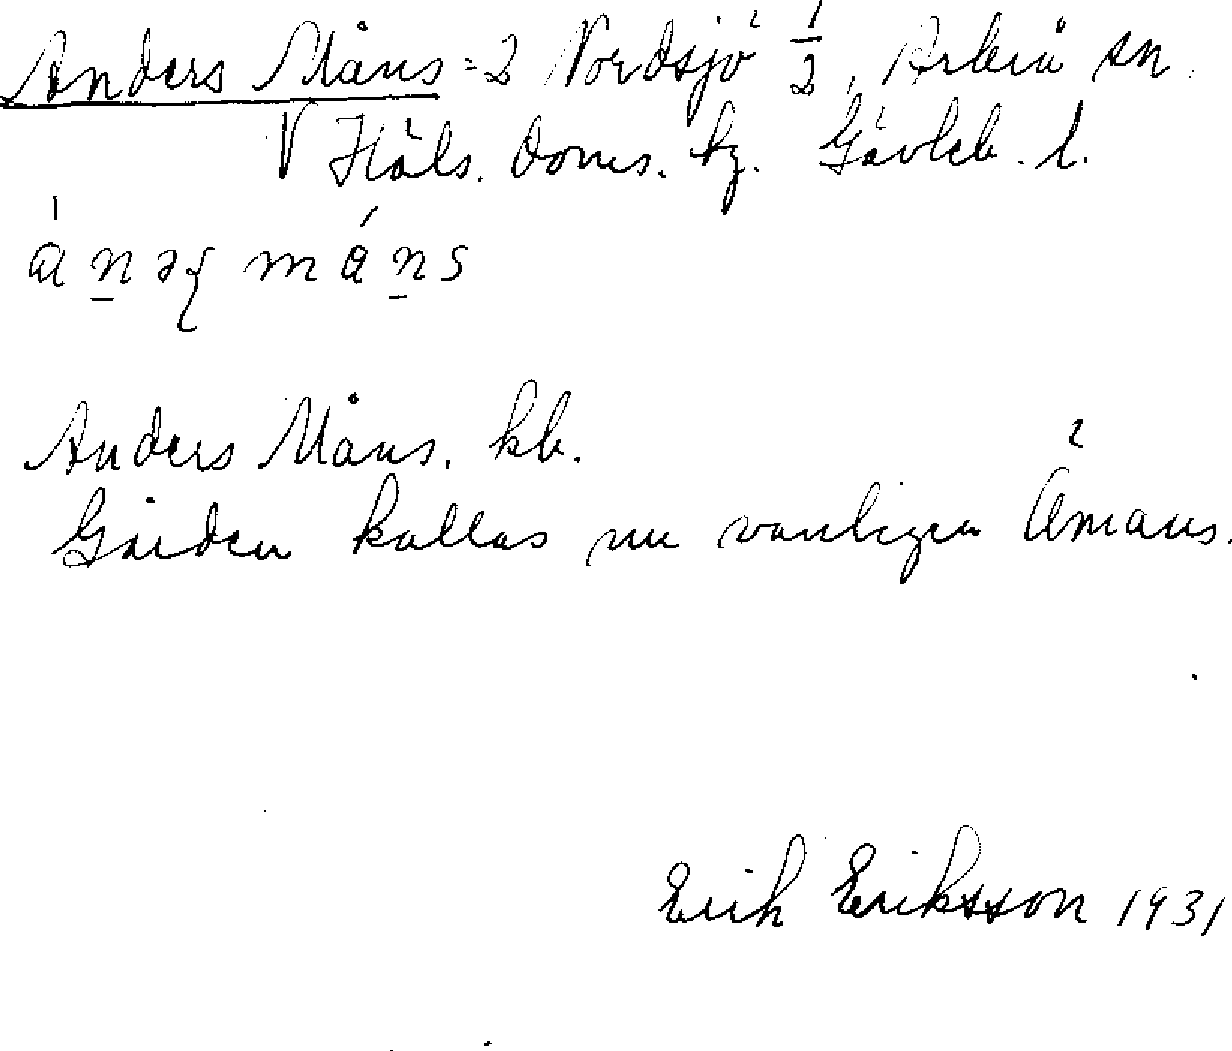 Anders Måns = 2 Nordsjö 1/2, Arbrå sn.
V Häls. doms. hg. Gävleb. l.
Anders Måns. kb.
Gården kallas nu vanligen Ämans.
Erik Eriksson 1931